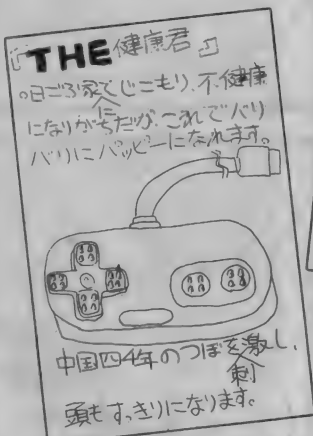 『THE健康君』
。日ごろ家にとじこもり、不健康
になりがちだが、これでバリ
バリにハッピーになれます。
中国四千年のつぼを刺激し、
頭もすっきりになります。